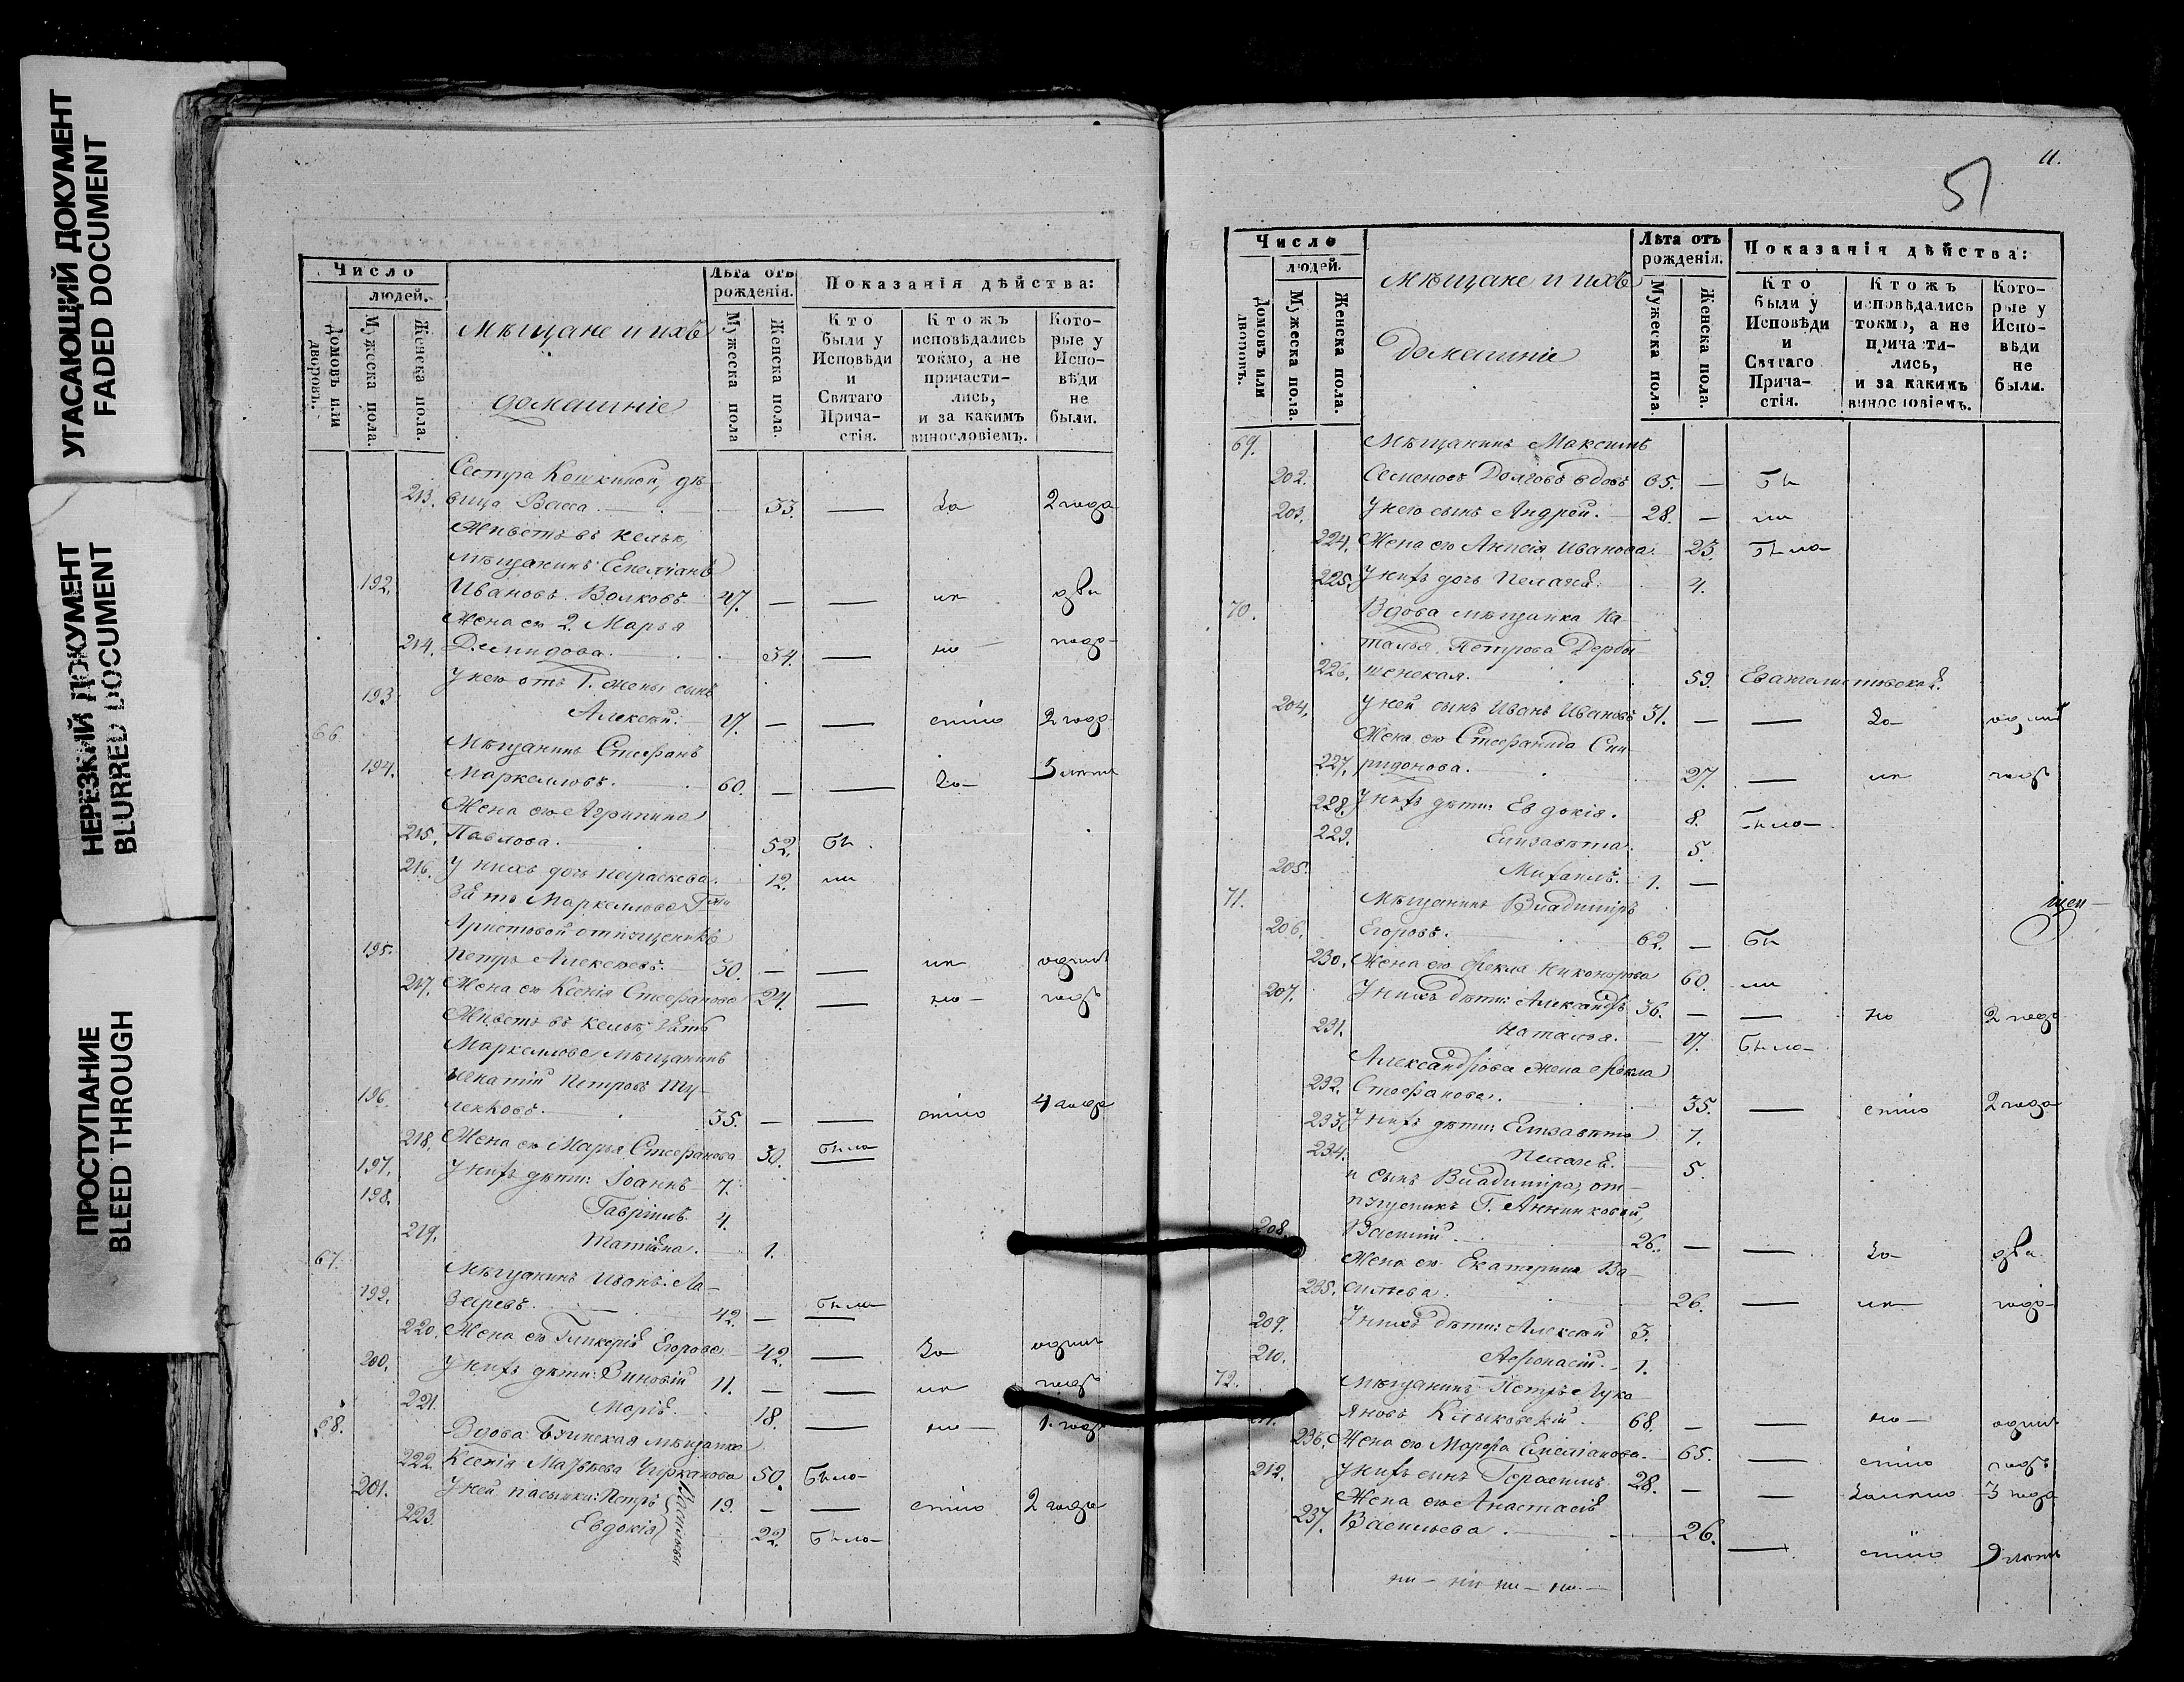 УГАСАЮЩИЙ ДОКУМЕНТ
FADED DOCUMENT
НЕРЕЗКИЙ ДОКУМЕНТ
BLURRED DOCUMENT
ПРОСТУПАНИЕ
BLEED THROUGH
Число
людей.
Домовъ или дворовъ.
Мужеска пола.
Женска пола.
Мѣщане и ихъ
домашніе
Лѣта отъ рожденія.
Мужеска пола
Женска пола.
Показанія дѣйства:
Кто были у Исповѣди и Святаго Прича-стія.
Ктожъ исповѣдались токмо, а не причасти-лись, и за какимъ винословіемъ.
Кото-рые у Испо-вѣди не были.
Сестра Кошкиной, дѣ-
213. вица Васса. 33. — За 2 года
Живетъ въ кельѣ,
мѣщанинъ Емелианъ
192. Ивановъ Волковъ 47. — — два
Жена его 2. Марья
214. Демидова. 34. — года
У него отъ 1. жены сынъ
193. Алексѣй. 17. — — стію 2 года
66
Мѣщанинъ Стефанъ
194. Маркелловъ. 60. — — За 5 лѣтъ
Жена его Агрипина
215. Павлова. 52. Бы
216. У нихъ дочь Параскева. 12. ли
Зять Маркеллова Г-жи
Аристовой отпущеникъ
195. Петръ Алексѣевъ. 30. — — одинъ
217. Жена его Ксенія Стефанова 24. — годъ
Живетъ въ кельѣ, зять
Маркеллова мѣщанинъ
Игнатій Петровъ Ту-
196. лековъ. 35. — — стію 4 года
218. Жена его Марья Стефанова 30. была
197. У нихъ дѣти: Іоаннъ 7.
198. Гавріилъ. 4.
219. Татіана. 1.
67.
Мѣщанинъ Иванъ Ла-
199. заревъ. 42. — была
220. Жена его Гликерія Егорова 42. — За одинъ
200. У нихъ дѣти: Зиновій 11. — — годъ
221. Марія 18. — 1. годъ
68.
Вдова мѣщанка
222. Ксенія Матвѣева 50. Была
201. У ней пасынки: Петръ 19. — — стію 2 года
223. Евдокія 22. Была
Васильевы
11.
51
Число
людей.
Домовъ или дворовъ.
Мужеска пола.
Женска пола.
Мѣщане и ихъ
домашніе
Лѣта отъ рожденія.
Мужеска пола.
Женска пола.
Показанія дѣйства:
Кто были у Исповѣди и Святаго Прича-стія.
Ктожъ исповѣдались токмо, а не причасти-лись, и за какимъ винословіемъ.
Кото-рые у Испо-вѣди не были.
69. Мѣщанинъ Максимъ
202. Семеновъ Долговъ вдовъ 65. — Бы
203. У него сынъ Андрей. 28. — ли
224. Жена его Анисія Иванова 23. Была
225. У нихъ дочь Пелагія. 4.
70. Вдова мѣщанка На-
талья Петрова Дербы-
226. шенская. 59.
204. У ней сынъ Иванъ Ивановъ 31. — — За одинъ
Жена его Стефанида Спи-
227. ридонова. 27. — годъ
228. У нихъ дѣти: Евдокія. 8. Была
229. Елизавета. 5.
205. Михаилъ. 1. —
71. Мѣщанинъ Владиміръ
206. Егоровъ. 62. — Бы
230. Жена его Фекла Никонорова 60. ли
207. У нихъ дѣти: Александръ 36. — — 2 года
231. Наталья. 17. Была
Александрова жена Фекла
232. Стефанова. 35. — стію 2 года
233. У нихъ дѣти: Елизавета 7.
234. Пелагія. 5.
и сынъ Владиміра, от-
пущеникъ Г. Анненковой,
208. Василій. 26. — — За два
Жена его Екатерина Ва-
235. сильева. 26. — года
209. У нихъ дѣти: Алексѣй 3.
210. Афонасій. 1.
72. Мѣщанинъ Петръ Лука-
211. яновъ 68. — — одинъ
236. Жена его Марфа Емеліанова. 65. — стію годъ
212. У нихъ сынъ Герасимъ 28. — — 3 года
Жена его Анастасія
237. Васильева. 26. — стію 9 лѣтъ